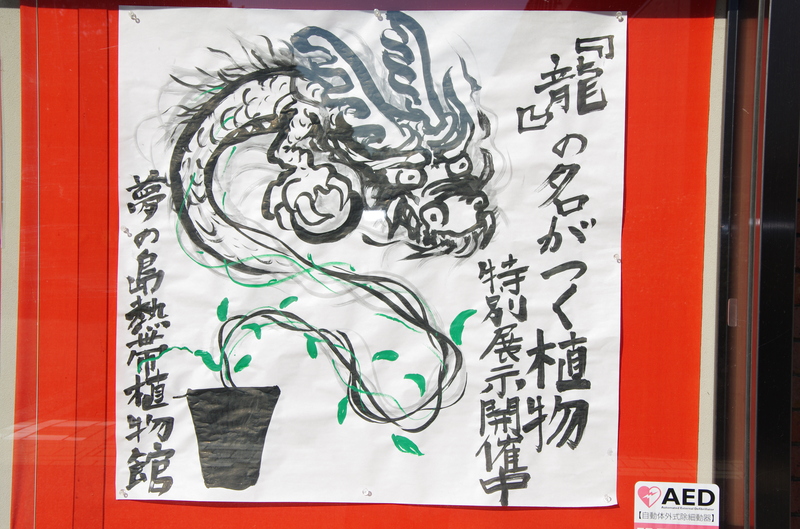 『龍』の名がつく植物
特別展示開催中
夢の島熱帯植物館
AED
Automated External Defibrillator
【自動体外式除細動器】